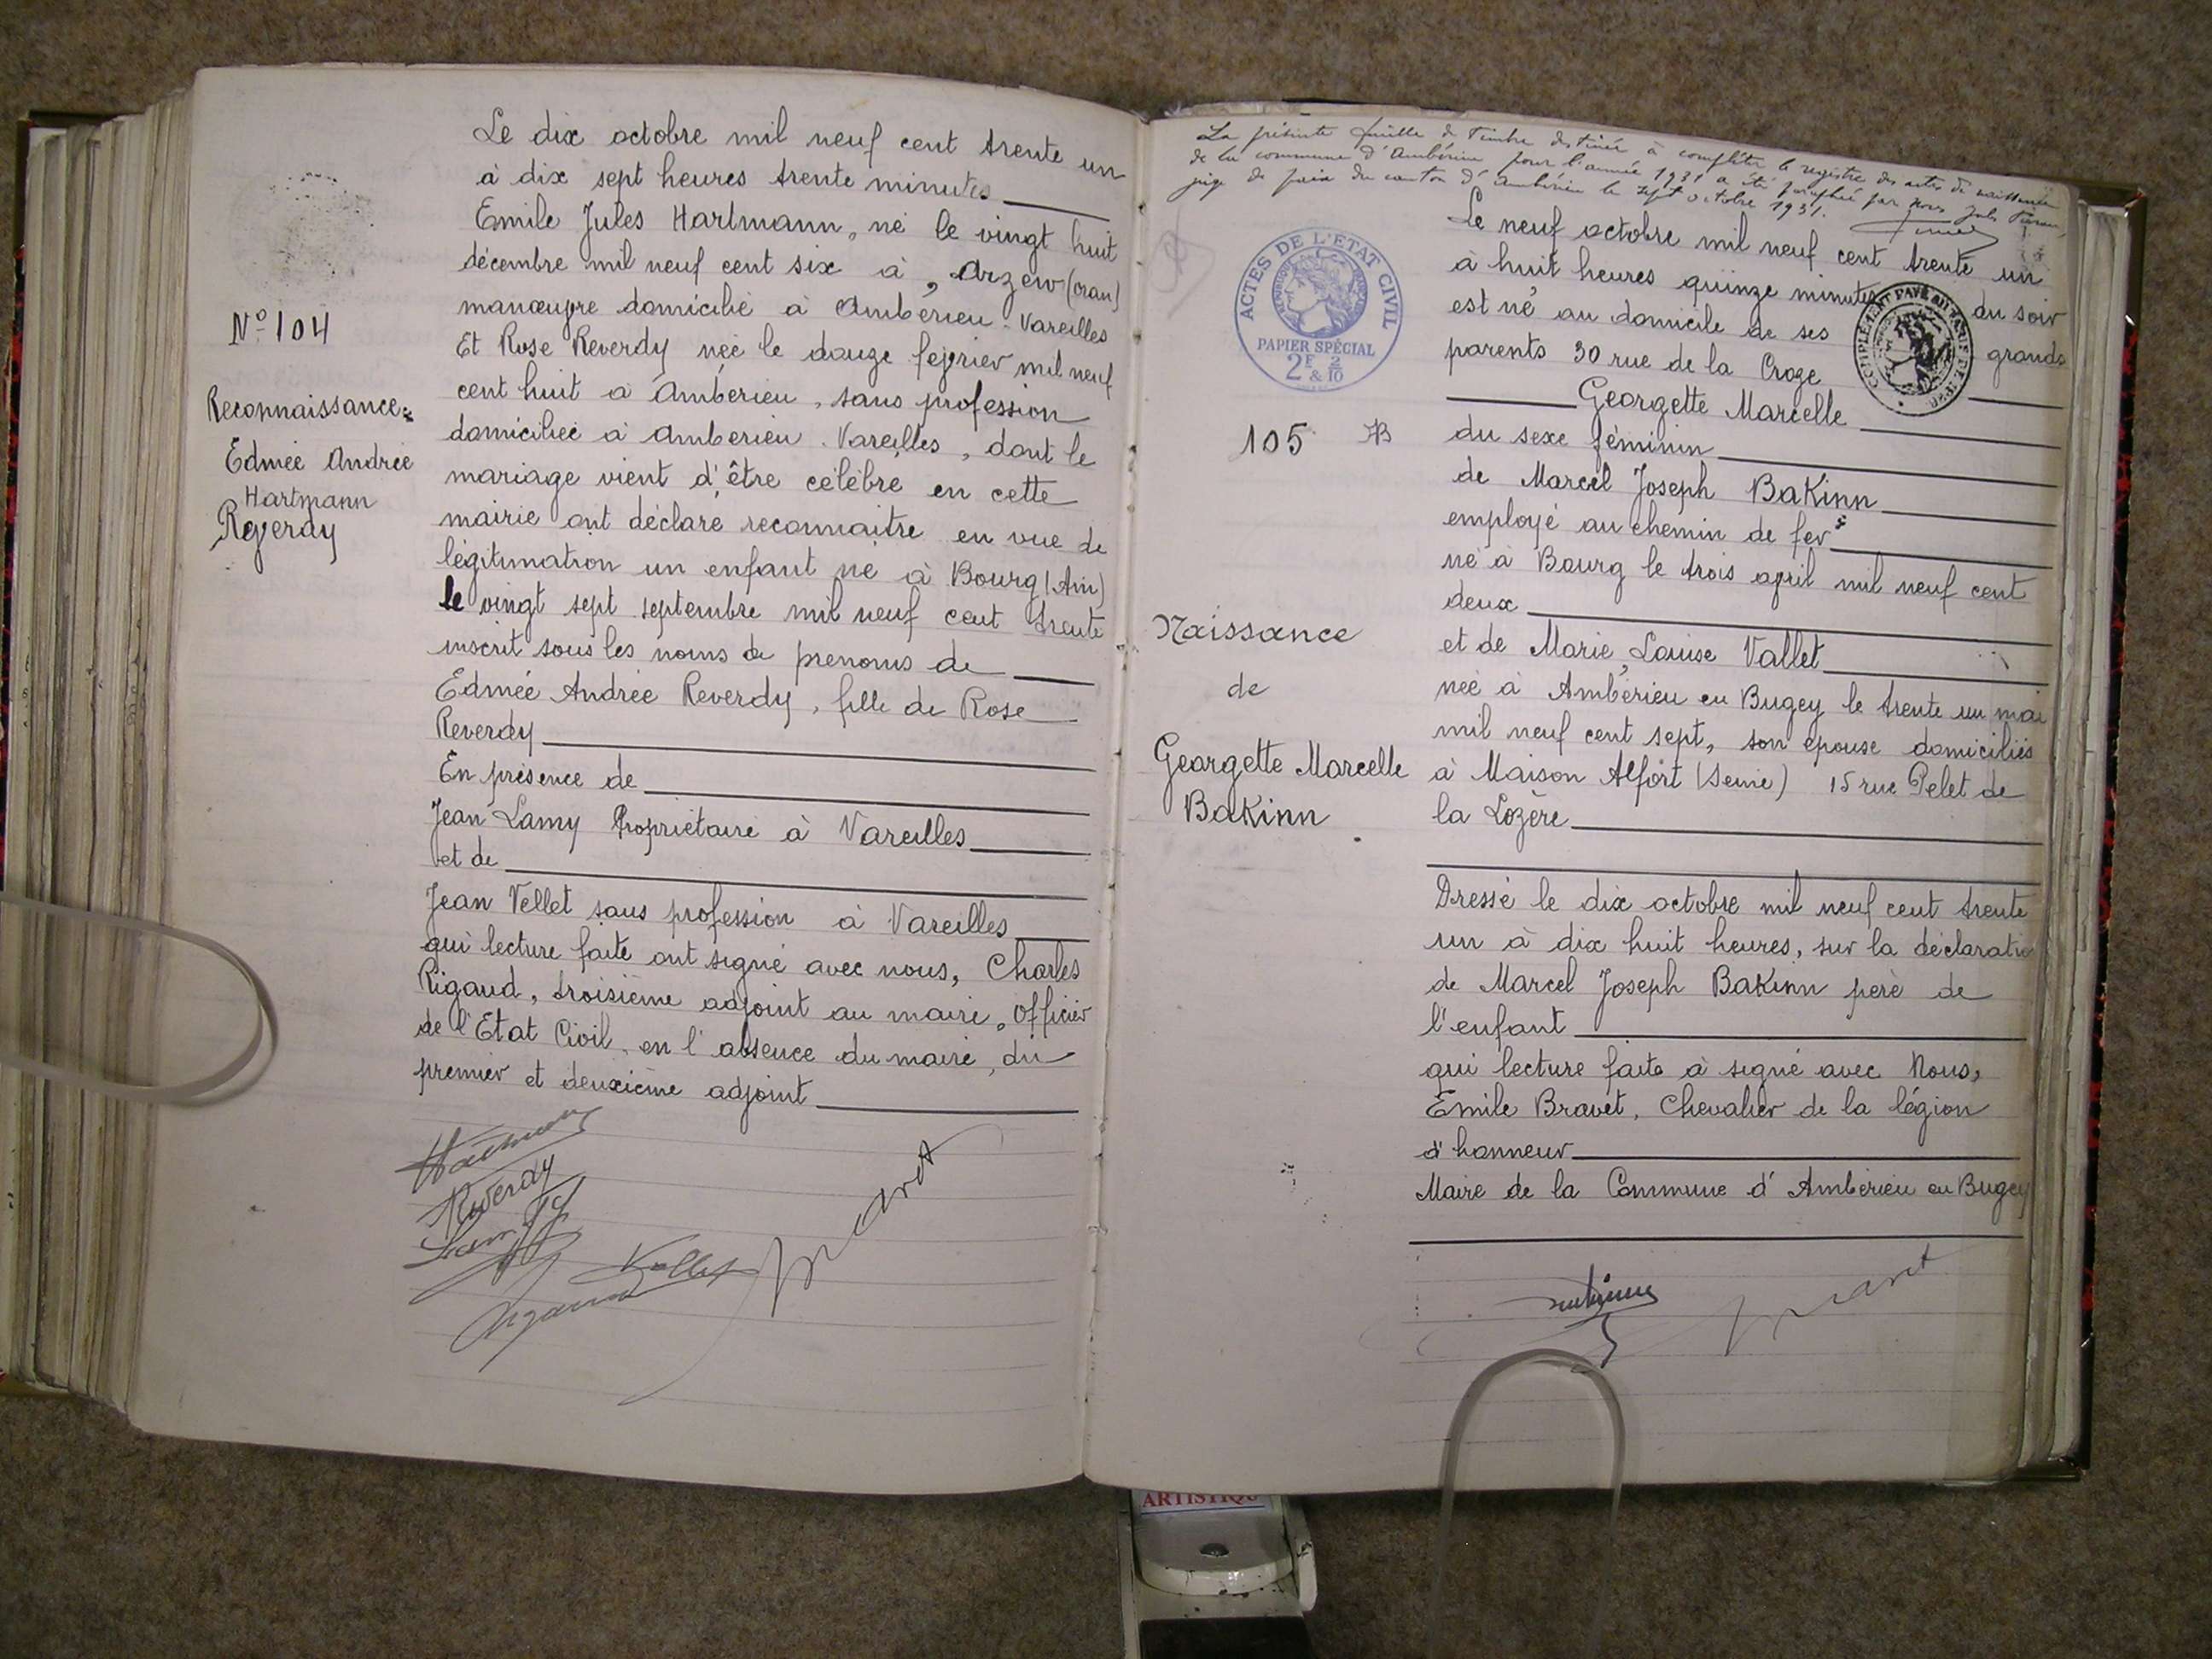 Le dix octobre mil neuf cent trente un
à dix sept heures trente minutes
Emile Jules Hartmann, né le vingt huit
décembre mil neuf cent six à, Arzew (oran)
manœuvre domicilié à Ambérieu-Vareilles
Et Rose Reverdy née le douze février mil neuf
cent huit à Ambérieu, sans profession
domiciliée à Ambérieu. Vareilles, dont le
mariage vient d'être célébré en cette
mairie ont déclaré reconnaitre en vue de
légitimation un enfant né à Bourg (Ain)
le vingt sept septembre mil neuf cent trente
inscrit sous les noms de prenoms de
Edmée Andrée Reverdy, fille de Rose
Reverdy
En présence de
Jean Lamy Propriétaire à Vareilles
et de
Jean Vellet sans profession à Vareilles
qui lecture faite ont signé avec nous, Charles
Rigaud, troisième adjoint au maire, Officier
de l'Etat Civil, en l'absence du maire, du
premier et deuxième adjoint
N° 104
Reconnaissance
Edmée Andrée
Hartmann
Reverdy
Reverdy
La présente feuille de Timbre destinée à compléter le registre des actes de naissance
de la commune d'Ambérieu pour l'année 1931 a été paraphée par nous Jules
juge de paix du canton d'Ambérieu le sept octobre 1931.
ACTES DE L'ETAT CIVIL
PAPIER SPÉCIAL
2F & 2/10
COMPLÉMENT PAYÉ AU
Le neuf octobre mil neuf cent trente un
à huit heures quinze minutes du soir
est né au domicile de ses grands
parents 30 rue de la Croze
Georgette Marcelle
du sexe féminin
de Marcel Joseph BaKinn
employé au chemin de fer
né à Bourg le trois avril mil neuf cent
deux
et de Marie, Louise Vallet
née à Ambérieu en Bugey le trente un mai
mil neuf cent sept, son épouse domiciliés
à Maison Alfort (Seine) 15 rue Pelet de
la Lozère
Dressé le dix octobre mil neuf cent trente
un à dix huit heures, sur la déclaratio
de Marcel Joseph BaKinn père de
l'enfant
qui lecture faite à signé avec Nous,
Emile Bravet, Chevalier de la légion
d'honneur
Maire de la Commune d'Ambérieu en Bugey
105
Naissance
de
Georgette Marcelle
BaKinn
ARTISTIQU